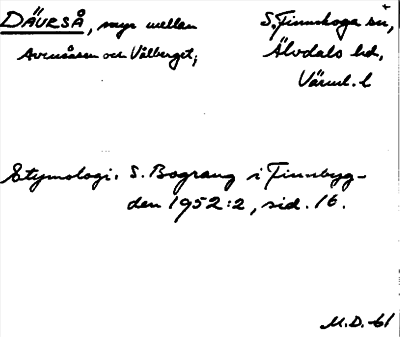 DÄVRSÅ, myr mellan
Avrusåsen och Vålberget;
S. Finnskoga sn,
Älvdals hd,
Värml. l
Etymologi: S. Bograng i Finnbyg-
den 1952:2, sid. 16.
M.D.-61